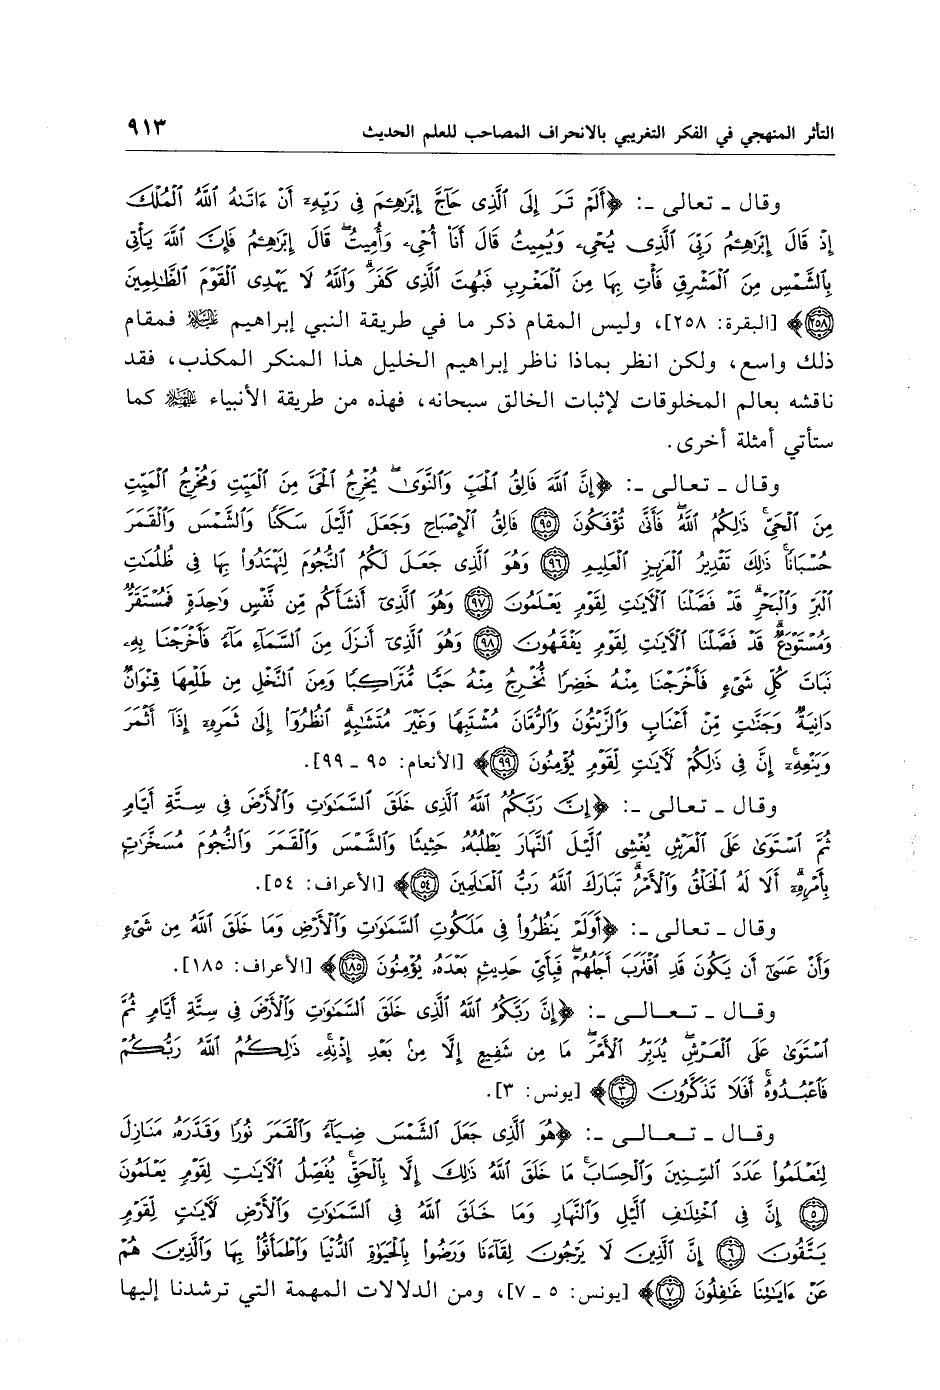 التأثر المنهجي في الفكر التغريبي بالانحراف المصاحب للعلم الحديث ٩١٣
وقال ـ تعالى ـ: ﴿أَلَمْ تَرَ إِلَى ٱلَّذِى حَآجَّ إِبْرَٰهِـۧمَ فِى رَبِّهِۦٓ أَنْ ءَاتَىٰهُ ٱللَّهُ ٱلْمُلْكَ
إِذْ قَالَ إِبْرَٰهِـۧمُ رَبِّىَ ٱلَّذِى يُحْىِۦ وَيُمِيتُ قَالَ أَنَا۠ أُحْىِۦ وَأُمِيتُ ۖ قَالَ إِبْرَٰهِـۧمُ فَإِنَّ ٱللَّهَ يَأْتِى
بِٱلشَّمْسِ مِنَ ٱلْمَشْرِقِ فَأْتِ بِهَا مِنَ ٱلْمَغْرِبِ فَبُهِتَ ٱلَّذِى كَفَرَ ۗ وَٱللَّهُ لَا يَهْدِى ٱلْقَوْمَ ٱلظَّٰلِمِينَ
(٢٥٨)﴾ [البقرة: ٢٥٨]، وليس المقام ذكر ما في طريقة النبي إبراهيم عليه السلام فمقام
ذلك واسع، ولكن انظر بماذا ناظر إبراهيم الخليل هذا المنكر المكذب، فقد
ناقشه بعالم المخلوقات لإثبات الخالق سبحانه، فهذه من طريقة الأنبياء عليهم السلام كما
ستأتي أمثلة أخرى.
وقال ـ تعالى ـ: ﴿إِنَّ ٱللَّهَ فَالِقُ ٱلْحَبِّ وَٱلنَّوَىٰ ۖ يُخْرِجُ ٱلْحَىَّ مِنَ ٱلْمَيِّتِ وَمُخْرِجُ ٱلْمَيِّتِ
مِنَ ٱلْحَىِّ ۚ ذَٰلِكُمُ ٱللَّهُ ۖ فَأَنَّىٰ تُؤْفَكُونَ (٩٥) فَالِقُ ٱلْإِصْبَاحِ وَجَعَلَ ٱلَّيْلَ سَكَنًا وَٱلشَّمْسَ وَٱلْقَمَرَ
حُسْبَانًا ۚ ذَٰلِكَ تَقْدِيرُ ٱلْعَزِيزِ ٱلْعَلِيمِ (٩٦) وَهُوَ ٱلَّذِى جَعَلَ لَكُمُ ٱلنُّجُومَ لِتَهْتَدُوا۟ بِهَا فِى ظُلُمَٰتِ
ٱلْبَرِّ وَٱلْبَحْرِ ۗ قَدْ فَصَّلْنَا ٱلْـَٔايَٰتِ لِقَوْمٍ يَعْلَمُونَ (٩٧) وَهُوَ ٱلَّذِىٓ أَنشَأَكُم مِّن نَّفْسٍ وَٰحِدَةٍ فَمُسْتَقَرٌّ
وَمُسْتَوْدَعٌ ۗ قَدْ فَصَّلْنَا ٱلْـَٔايَٰتِ لِقَوْمٍ يَفْقَهُونَ (٩٨) وَهُوَ ٱلَّذِىٓ أَنزَلَ مِنَ ٱلسَّمَآءِ مَآءً فَأَخْرَجْنَا بِهِۦ
نَبَاتَ كُلِّ شَىْءٍ فَأَخْرَجْنَا مِنْهُ خَضِرًا نُّخْرِجُ مِنْهُ حَبًّا مُّتَرَاكِبًا وَمِنَ ٱلنَّخْلِ مِن طَلْعِهَا قِنْوَانٌ
دَانِيَةٌ وَجَنَّٰتٍ مِّنْ أَعْنَابٍ وَٱلزَّيْتُونَ وَٱلرُّمَّانَ مُشْتَبِهًا وَغَيْرَ مُتَشَٰبِهٍ ۗ ٱنظُرُوٓا۟ إِلَىٰ ثَمَرِهِۦٓ إِذَآ أَثْمَرَ
وَيَنْعِهِۦٓ ۚ إِنَّ فِى ذَٰلِكُمْ لَـَٔايَٰتٍ لِّقَوْمٍ يُؤْمِنُونَ (٩٩)﴾ [الأنعام: ٩٥ ـ ٩٩].
وقال ـ تعالى ـ: ﴿إِنَّ رَبَّكُمُ ٱللَّهُ ٱلَّذِى خَلَقَ ٱلسَّمَٰوَٰتِ وَٱلْأَرْضَ فِى سِتَّةِ أَيَّامٍ
ثُمَّ ٱسْتَوَىٰ عَلَى ٱلْعَرْشِ يُغْشِى ٱلَّيْلَ ٱلنَّهَارَ يَطْلُبُهُۥ حَثِيثًا وَٱلشَّمْسَ وَٱلْقَمَرَ وَٱلنُّجُومَ مُسَخَّرَٰتٍ
بِأَمْرِهِۦٓ ۗ أَلَا لَهُ ٱلْخَلْقُ وَٱلْأَمْرُ ۗ تَبَارَكَ ٱللَّهُ رَبُّ ٱلْعَٰلَمِينَ (٥٤)﴾ [الأعراف: ٥٤].
وقال ـ تعالى ـ: ﴿أَوَلَمْ يَنظُرُوا۟ فِى مَلَكُوتِ ٱلسَّمَٰوَٰتِ وَٱلْأَرْضِ وَمَا خَلَقَ ٱللَّهُ مِن شَىْءٍ
وَأَنْ عَسَىٰٓ أَن يَكُونَ قَدِ ٱقْتَرَبَ أَجَلُهُمْ ۖ فَبِأَىِّ حَدِيثٍۭ بَعْدَهُۥ يُؤْمِنُونَ (١٨٥)﴾ [الأعراف: ١٨٥].
وقال ـ تعالى ـ: ﴿إِنَّ رَبَّكُمُ ٱللَّهُ ٱلَّذِى خَلَقَ ٱلسَّمَٰوَٰتِ وَٱلْأَرْضَ فِى سِتَّةِ أَيَّامٍ ثُمَّ
ٱسْتَوَىٰ عَلَى ٱلْعَرْشِ ۖ يُدَبِّرُ ٱلْأَمْرَ ۖ مَا مِن شَفِيعٍ إِلَّا مِنۢ بَعْدِ إِذْنِهِۦ ۚ ذَٰلِكُمُ ٱللَّهُ رَبُّكُمْ
فَٱعْبُدُوهُ ۚ أَفَلَا تَذَكَّرُونَ (٣)﴾ [يونس: ٣].
وقال ـ تعالى ـ: ﴿هُوَ ٱلَّذِى جَعَلَ ٱلشَّمْسَ ضِيَآءً وَٱلْقَمَرَ نُورًا وَقَدَّرَهُۥ مَنَازِلَ
لِتَعْلَمُوا۟ عَدَدَ ٱلسِّنِينَ وَٱلْحِسَابَ ۚ مَا خَلَقَ ٱللَّهُ ذَٰلِكَ إِلَّا بِٱلْحَقِّ ۚ يُفَصِّلُ ٱلْـَٔايَٰتِ لِقَوْمٍ يَعْلَمُونَ
(٥) إِنَّ فِى ٱخْتِلَٰفِ ٱلَّيْلِ وَٱلنَّهَارِ وَمَا خَلَقَ ٱللَّهُ فِى ٱلسَّمَٰوَٰتِ وَٱلْأَرْضِ لَـَٔايَٰتٍ لِّقَوْمٍ
يَتَّقُونَ (٦) إِنَّ ٱلَّذِينَ لَا يَرْجُونَ لِقَآءَنَا وَرَضُوا۟ بِٱلْحَيَوٰةِ ٱلدُّنْيَا وَٱطْمَأَنُّوا۟ بِهَا وَٱلَّذِينَ هُمْ
عَنْ ءَايَٰتِنَا غَٰفِلُونَ (٧)﴾ [يونس: ٥ ـ ٧]، ومن الدلالات المهمة التي ترشدنا إليها